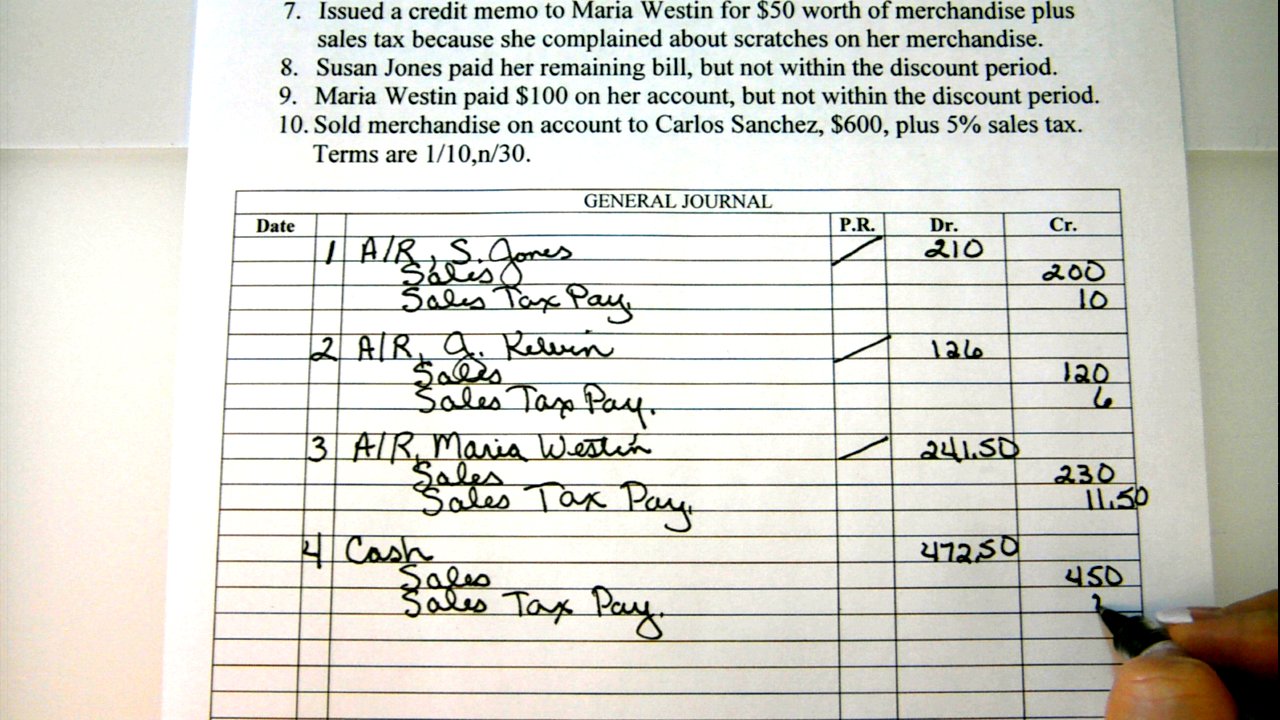 7. Issued a credit memo to Maria Westin for $50 worth of merchandise plus
sales tax because she complained about scratches on her merchandise.
8. Susan Jones paid her remaining bill, but not within the discount period.
9. Maria Westin paid $100 on her account, but not within the discount period.
10. Sold merchandise on account to Carlos Sanchez, $600, plus 5% sales tax.
Terms are 1/10,n/30.
GENERAL JOURNAL
Date P.R. Dr. Cr.
1 A/R, S. Jones 210
Sales 200
Sales Tax Pay. 10
2 A/R, A. Kelvin 126
Sales 120
Sales Tax Pay. 6
3 A/R, Maria Westin 241.50
Sales 230
Sales Tax Pay. 11.50
4 Cash 472.50
Sales 450
Sales Tax Pay.